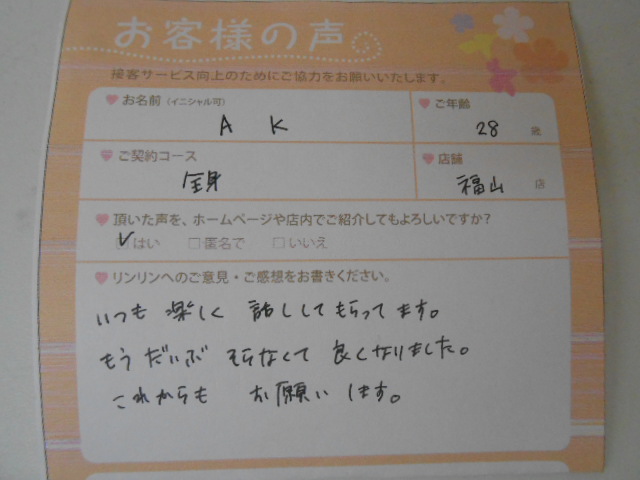 お客様の声
接客サービス向上のためにご協力をお願いいたします。
お名前 (イニシャル可) ご年齢
A K 28 歳
ご契約コース 店舗
全身 福山 店
頂いた声を、ホームページや店内でご紹介してもよろしいですか?
☑はい □匿名で □いいえ
リンリンへのご意見・ご感想をお書きください。
いつも 楽しく 話ししてもらってます。
もう だいぶ そらなくて 良くなりました。
これからも お願い します。